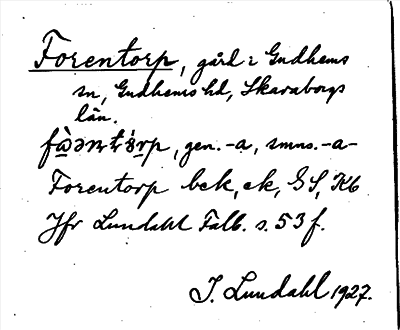 Forentorp, gård i Gudhems
sn, Gudhems hd, Skaraborgs
län.
gen. -a, smns. -a-
Forentorp bek, ek, GS, Kb
Jfr Lundahl Falb. s. 53 f.
I. Lundahl 1927.